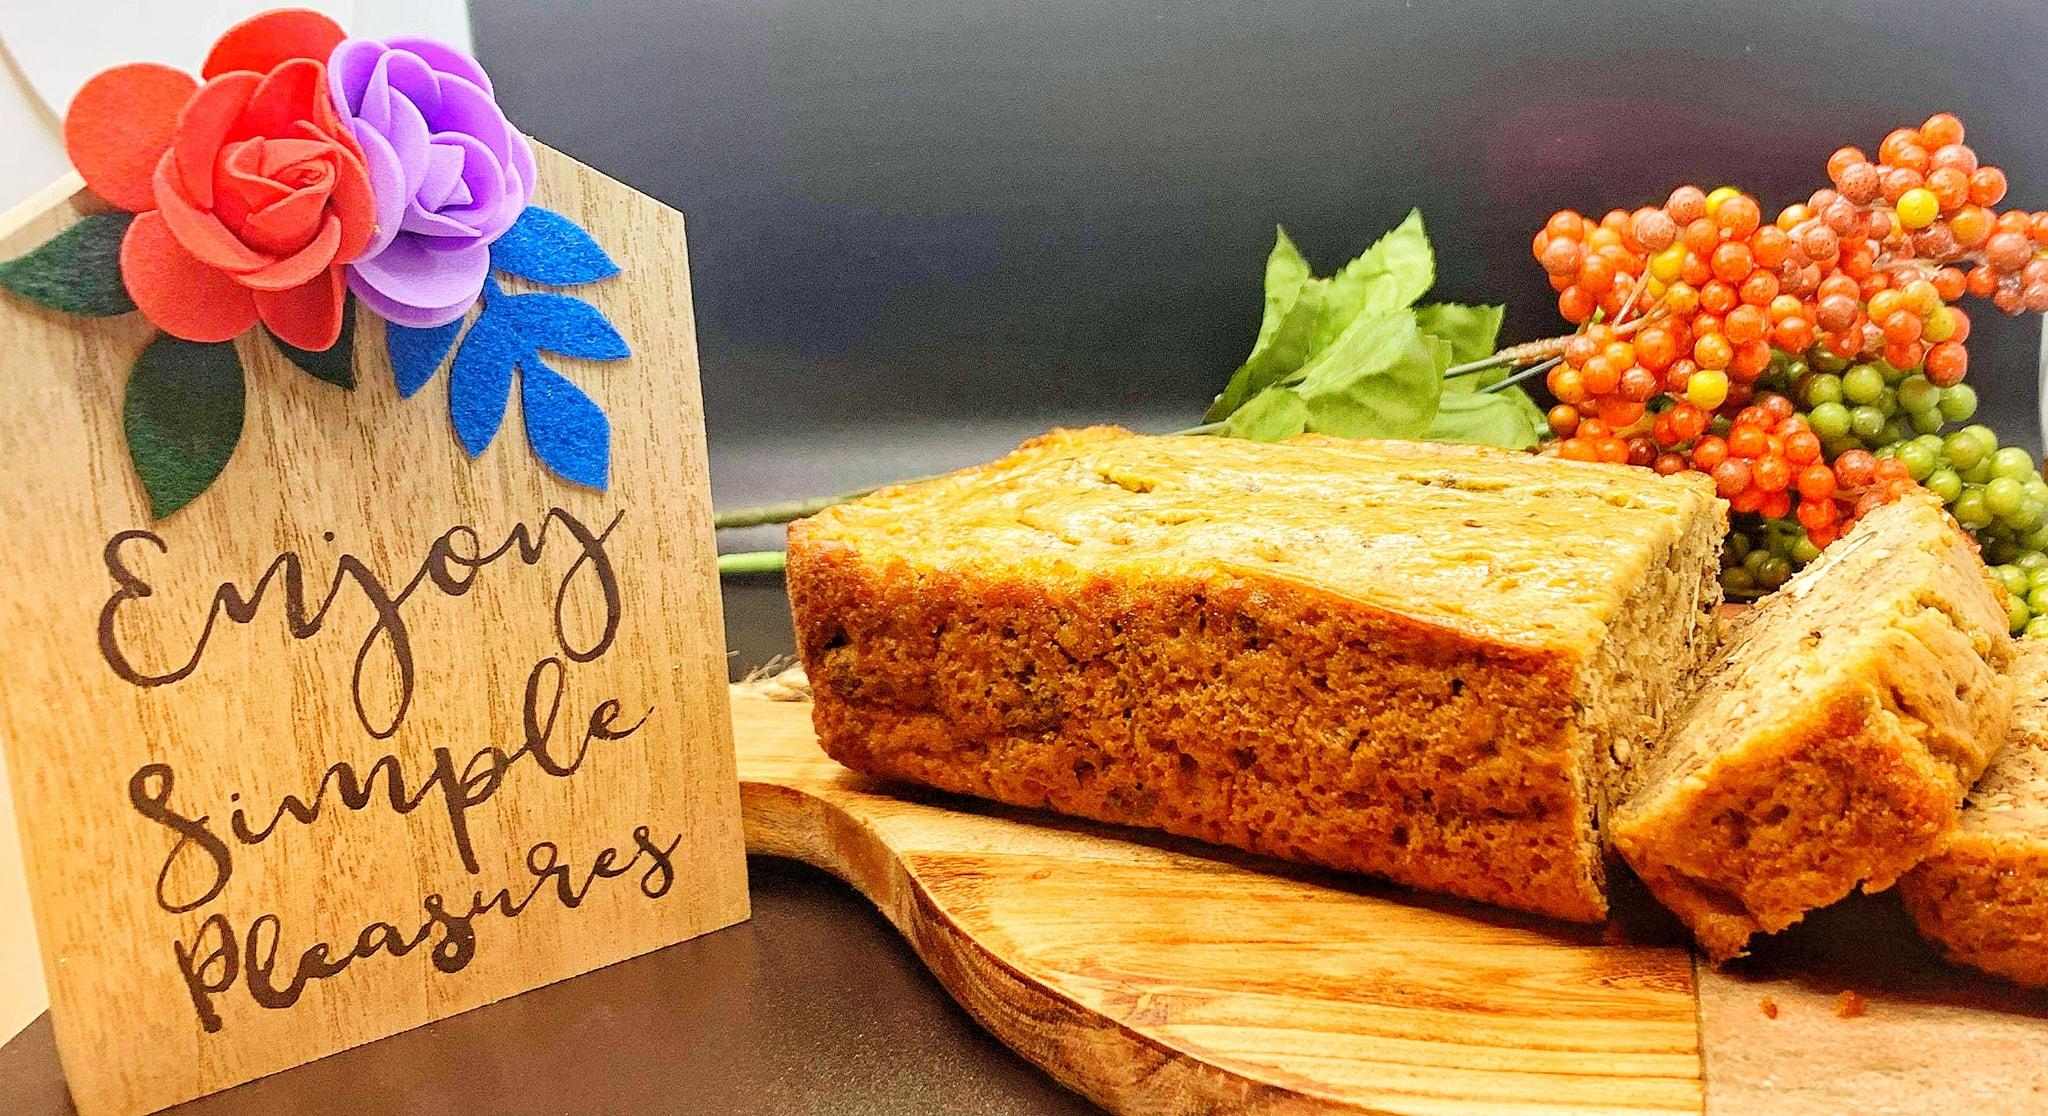 Enjoy
Simple
Pleasures